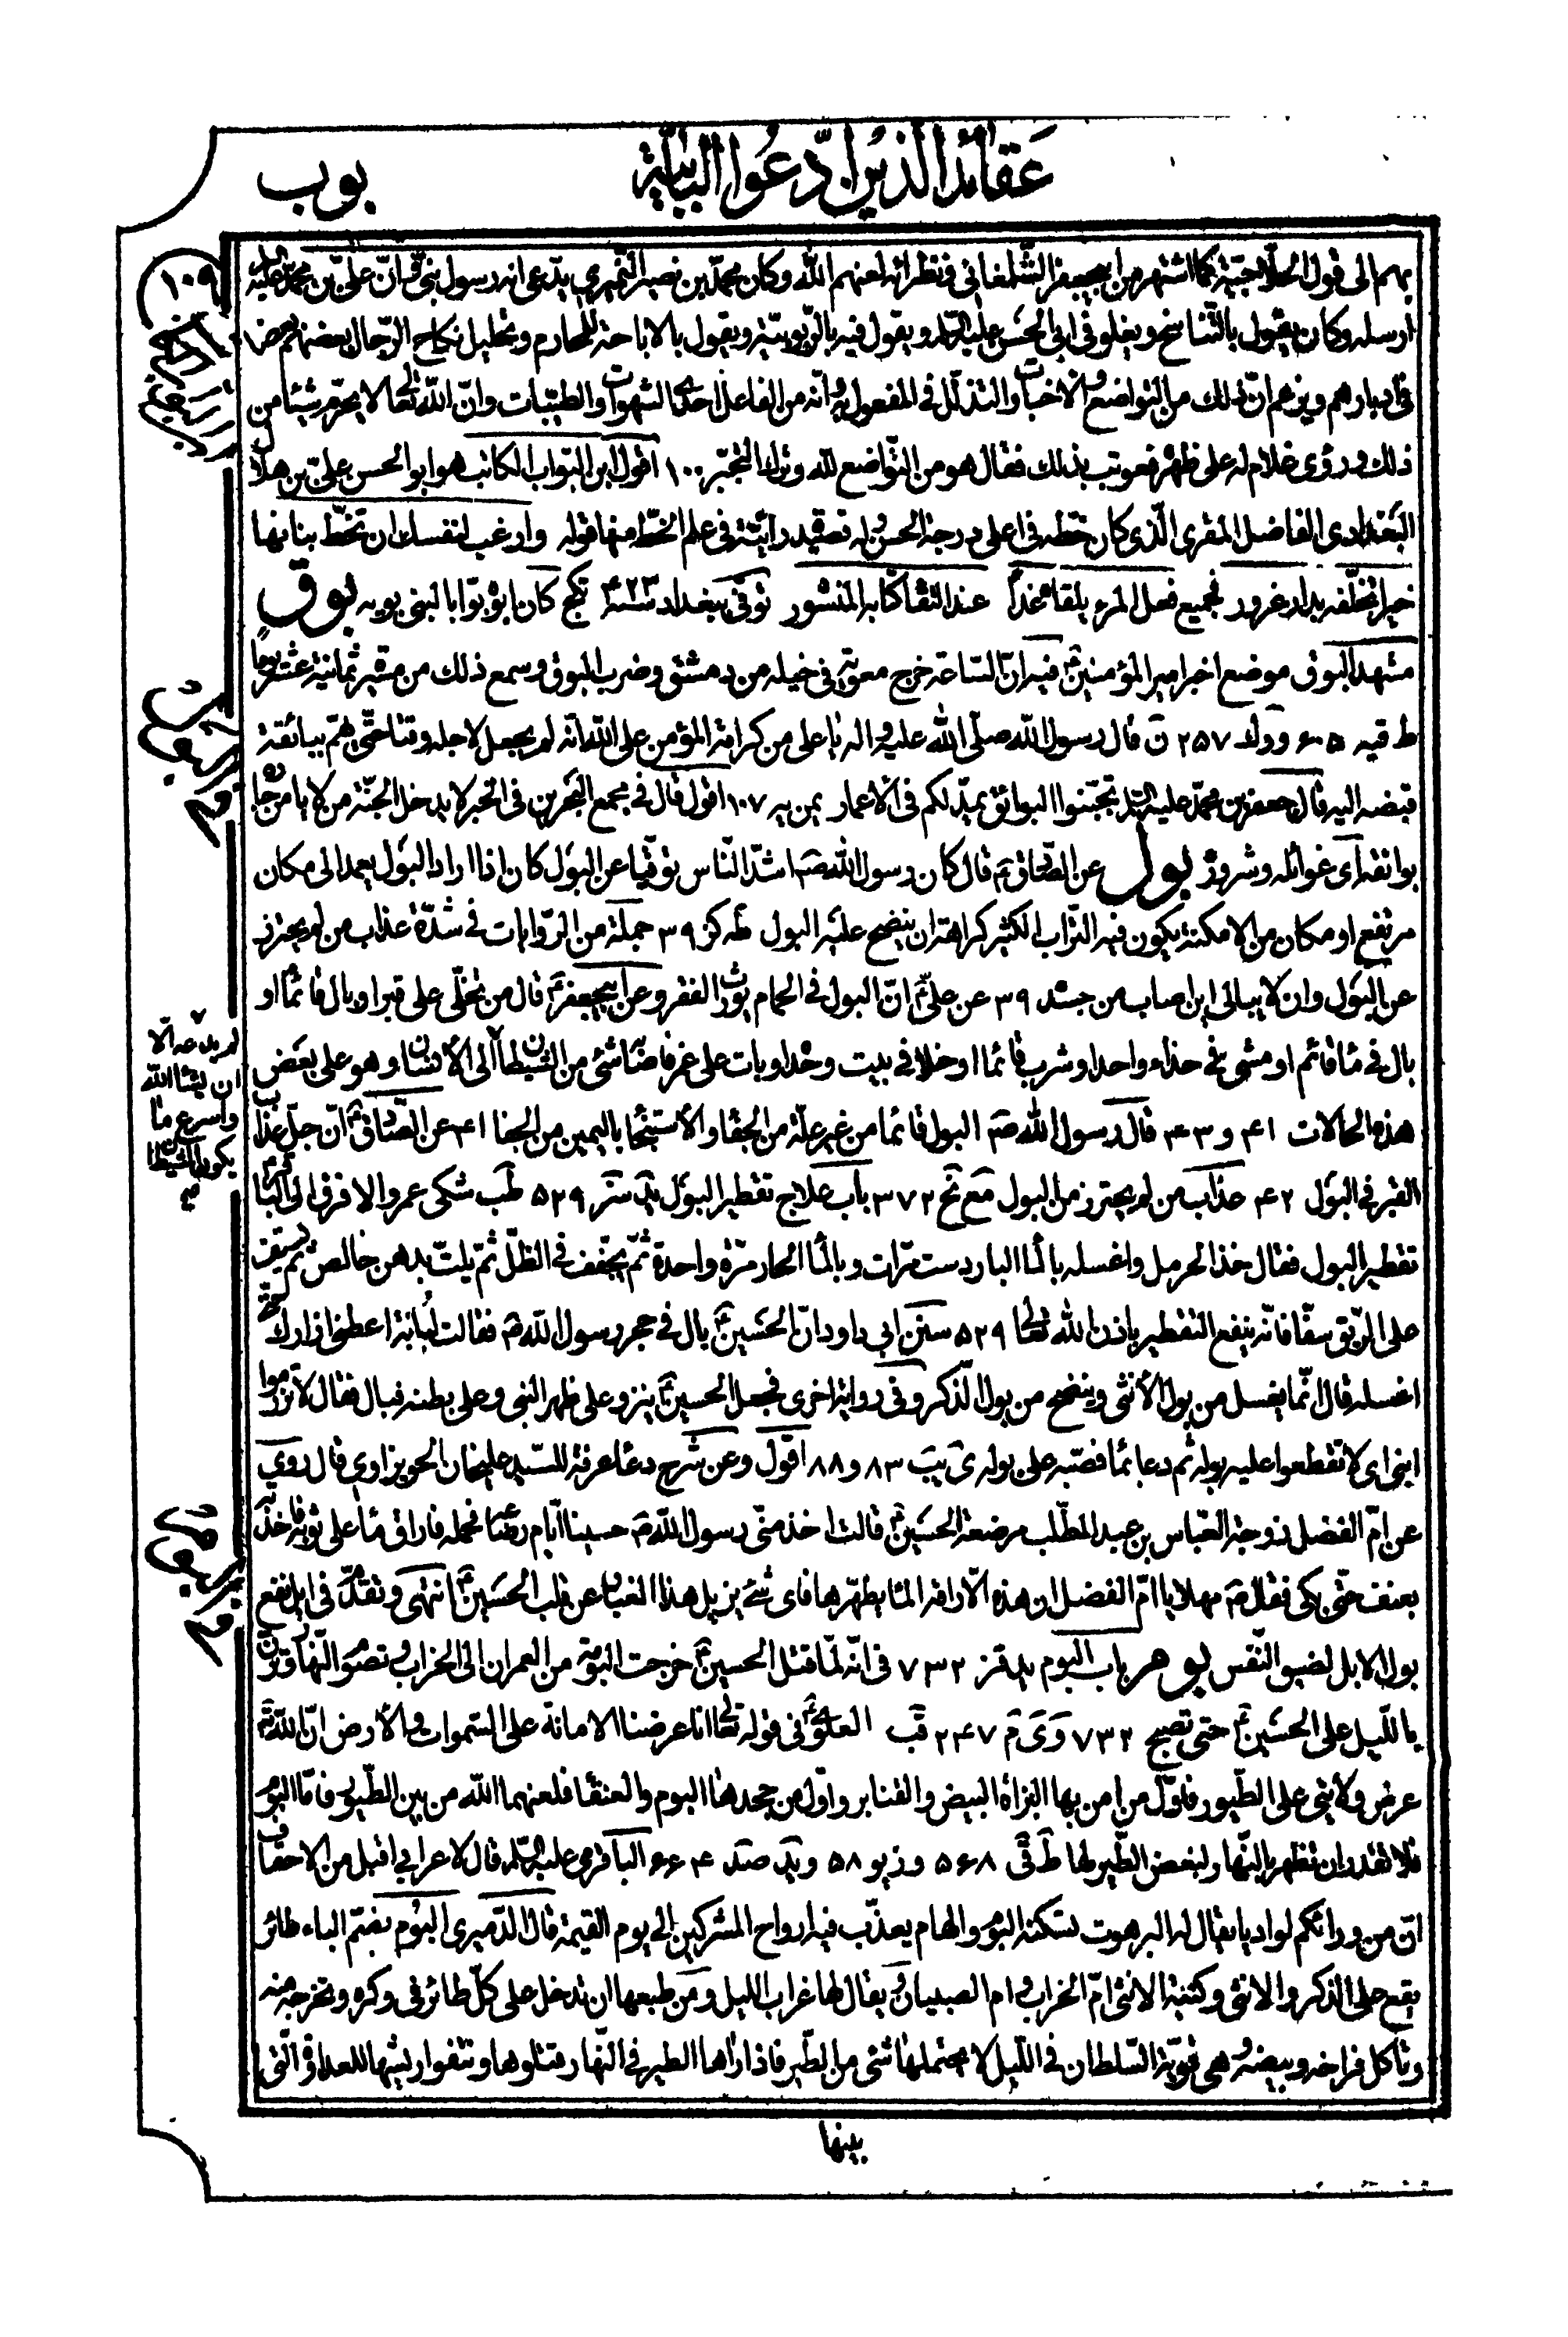 عقائد الذين ادّعوا البابيّة
بوب
١٠٩
بهم الى قول الحلّاجيّة كما اشتهر من ابيجعفر الشّلمغاني و نظرائه لعنهم الله وكان محمّد بن نصير النّميري يدّعى انه رسول نبيّ وانّ عليّ بن محمّد عليه السلام
ارسله وكان يقول بالتّناسخ ويغلو في ابي الحسن عليه السّلم ويقول فيه بالرّبوبيّة ويقول بالاباحة للمحارم وتحليل نكاح الرّجال بعضهم بعضا
في ادبارهم ويزعم انّ ذلك من التّواضع والاخبات والتذلّل في المفعول به وانّه من الفاعل احدى الشهوات والطيّبات وانّ الله تعالى لا يحرّم شيئا من
ذلك ورؤى غلام له على ظهره فعوتب بذلك فقال هو من التّواضع لله وترك التجبّر ١٠٠ اقول ابن البوّاب الكاتب هو ابو الحسن عليّ بن هلال
البغدادى الفاضل المقرى الّذى كان خطّه في اعلى درجة الحسن وله قصيدة رائيّة في علم الخطّ منها قوله وارغب لنفسك ان تخطّ بنانها
خيرا تخلّفه بدار غرور فجميع فعل المرء يلقاه غدا عند التقاء كتابه المنشور توفّى ببغداد سنة ٤٢٣ تكج كان ابوه بوّابا لبنى بويه بوق
مشهد البوق موضع اخبر امير المؤمنين ع فيه انّ السّاعة خرج معوية في خيله من دمشق وضرب البوق وسمع ذلك من مسيرة ثمانية عشر يوما
ط قيه ٦٠٥ و ولد ٢٥٧ ن قال رسول الله صلّى الله عليه واله يا على من كرامة المؤمن على الله انّه لم يجعل لاجله وقتا حتّى يهمّ ببائقة فاذا همّ ببائقة
قبضه اليه قال جعفر بن محمّد عليه السّلم تجنّبوا البوائق يمدّ لكم في الاعمار يمن يه ١٠٧ اقول قال في مجمع البحرين في الخبر لا يدخل الجنّة من لا يامن جاره
بوائقه اى غوائله وشروره بول عن الصّادق ع قال كان رسول الله ص اشدّ النّاس توقّيا عن البول كان اذا اراد البول يعمد الى مكان
مرتفع او مكان من الامكنة يكون فيه التّراب الكثير كراهة ان ينضح عليه البول طه كز ٣٩ جملة من الرّوايات في شدّة عذاب من لم يحترز
عن البول وان لا يبالى اين اصاب من جسده ٣٩ عن عليّ ع انّ البول في الحمام يورث الفقر وعن ابيجعفر ع قال من تخلّى على قبر او بال قائما او
بال في ماء قائم او مشى في حذاء واحد او شرب قائما او خلا في بيت وحده او بات على غمر فاصابه شئ من الشيطان لم يدعه الّا ان يشاء الله واسرع ما يكون الشيطان الى الانسان وهو على بعض
هذه الحالات ٤١ و ٤٣ قال رسول الله ص البول قائما من غير علّة من الجفاء والاستنجاء باليمين من الجفاء ٤١ عن الصّادق ع انّ جلّ عذاب
القبر في البول ٤٢ عذاب من لم يحترز من البول مع نح ٣٧٢ باب علاج تقطير البول يد ستر ٥٢٩ طب شكى عمرو الافرق الى الباقر ع
تقطير البول فقال خذ الحرمل واغسله بالماء البارد ست مرّات وبالماء الحار مرّة واحدة ثمّ يجفّف في الظلّ ثمّ يلتّ بدهن خالص ثم يستفّ
على الرّيق سفّا فانّه ينفع التقطير باذن الله تعالى ٥٢٩ سنن ابي داود انّ الحسين ع بال في حجر رسول الله ص فقالت لبابة اعطنى ازارك حتى
اغسله قال انّما يغسل من بول الأنثى وينضح من بول الذّكر وفي رواية اخرى فجعل الحسين ع ينزو على ظهر النبى وعلى بطنه فبال فقال لا تزرموا
ابنى اى لا تقطعوا عليه بوله ثم دعا بماء فصبّه على بوله ى يب ٨٣ و ٨٨ اقول وعن شرح دعاء عرفة للسّيد عليخان الحويزاوى قال روى
عن امّ الفضل زوجة العبّاس بن عبد المطّلب مرضعة الحسين ع قالت اخذ منّى رسول الله ص حسينا ايّام رضاعه فحمله فاراق ماء على ثوبه فاخذته
بعنف حتّى بكى فقال ص مهلا يا امّ الفضل ان هذه الاراقة الماء يطهّرها فاى شئ يزيل هذا الغبار عن قلب الحسين ع انتهى وتقدّم في ابل نفع
بول الابل لضيق النّفس بوم باب البوم يد قز ٧٣٢ في انّه لمّا قتل الحسين ع خرجت البومة من العمران الى الخراب وتصوم النّهار وترنّ
بالليل على الحسين ع حتى تصبح ٧٣٢ و ى م ٢٤٧ قب العلوى ع في قوله تعالى انا عرضنا الامانة على السّموات والأرض انّ الله تع
عرض ولايتي على الطّيور فاوّل من امن بها البزاة البيض والقنابر واوّل من جحدها البوم والعنقاء فلعنهما الله من بين الطّيور فامّا البوم
فلا تقدر ان تظهر بالنّهار لبغض الطّير لها ط قى ٥٦٨ و ز يو ٥٨ ويد صد ٦٦٤ الباقرى عليه السّلم قال لاعرابي اقبل من الاحقاف
انّ من ورائكم لواديا يقال له البرهوت تسكنه البوم والهام يعذّب فيه ارواح المشركين الى يوم القيمة قال الدّميرى البوم بضمّ الباء طائر
يقع على الذكر والانثى وكنية الانثى امّ الخراب وام الصبيان ويقال لها غراب الليل ومن طبعها ان تدخل على كلّ طائر في وكره وتخرجه منه
وتاكل فراخه وبيضه وهى قويّة السّلطان في اللّيل لا يحتملها شئ من الطّير فاذا راٰها الطير في النّهار قتلوها ونتفوا ريشها للعداوة الّتى
بينها